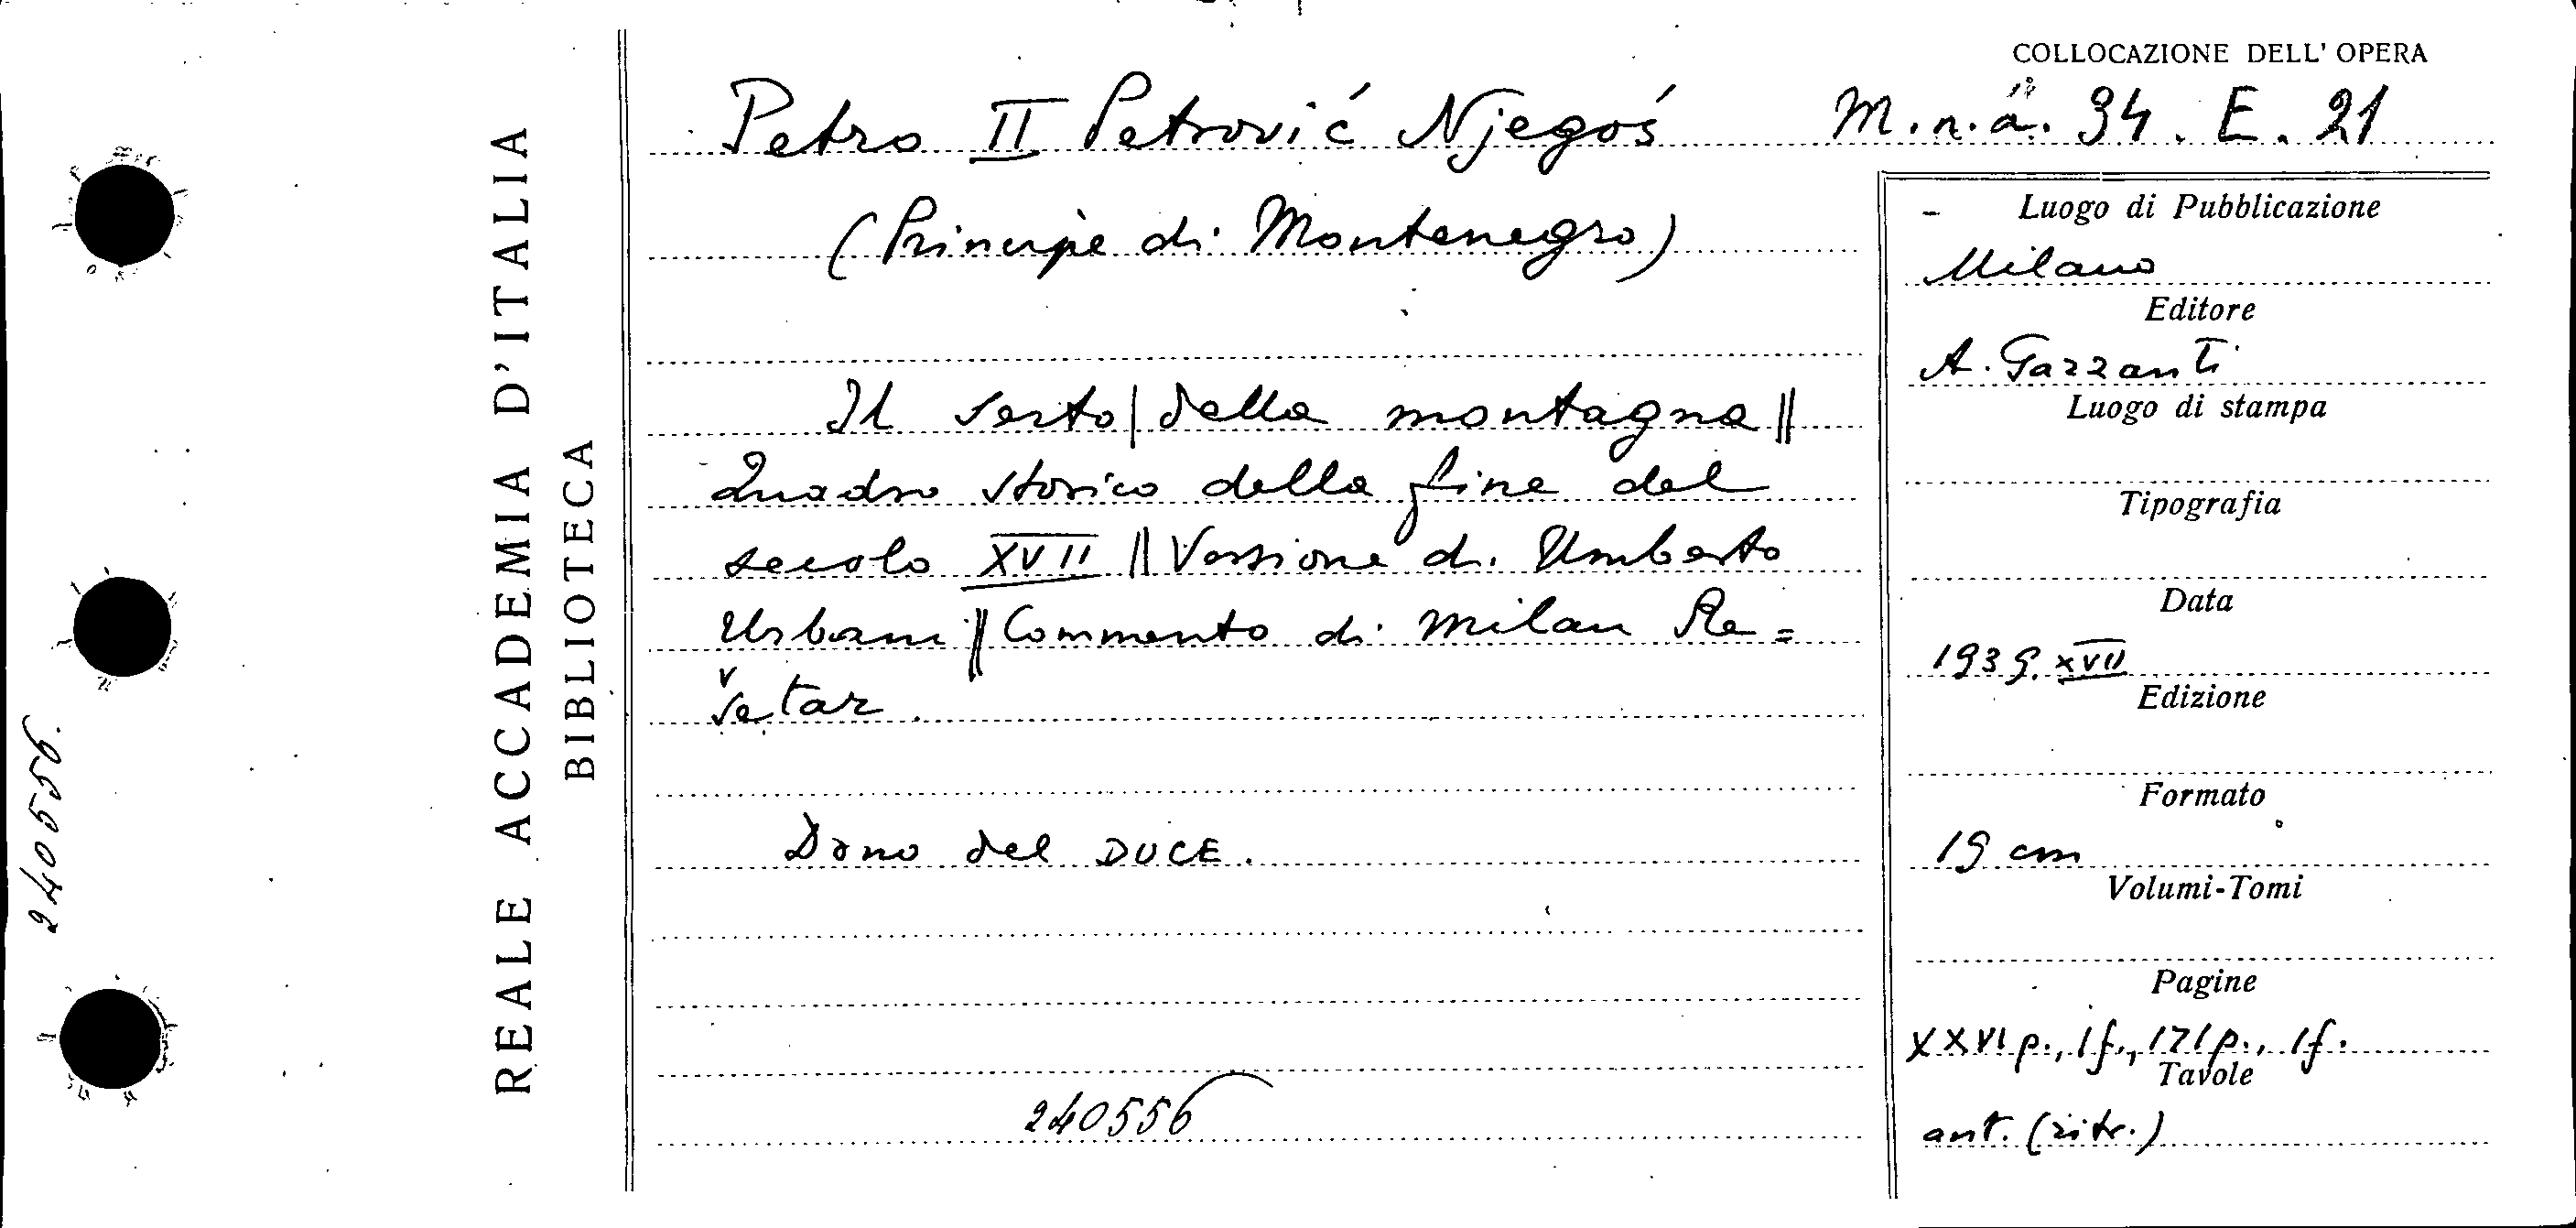 COLLOCAZIONE DELL' OPERA
Petro II Petrović Njegoś M.n.a. 34. E. 21
(Principe di Montenegro)
Il serto | della montagna ||
Quadro storico della fine del
secolo XVII || Versione di Umberto
Urbani || Commento di Milan Re=
šetar.
Dono del DUCE.
240556
Luogo di Pubblicazione
Milano
Editore
A. Garzanti
Luogo di stampa
Tipografia
Data
1939. XVII
Edizione
Formato
19 cm
Volumi-Tomi
Pagine
XXVI p., 1 f., 171 p., 1 f.
Tavole
ant. (ritr.)
REALE ACCADEMIA D'ITALIA
BIBLIOTECA
240556.